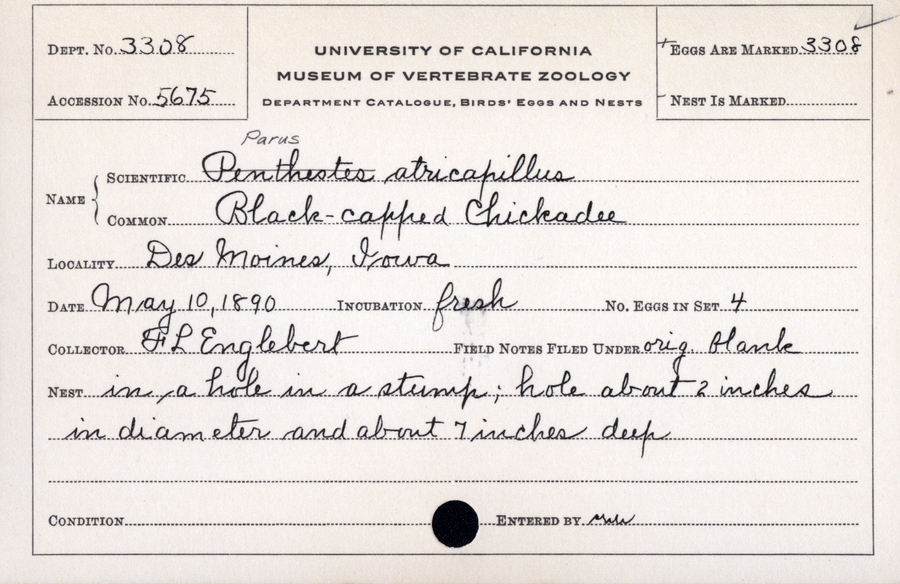 Dept. No. 3308
UNIVERSITY OF CALIFORNIA
MUSEUM OF VERTEBRATE ZOOLOGY
Department Catalogue, Birds' Eggs and Nests
Accession No. 5675
Eggs Are Marked 3308
Nest Is Marked
Parus
Name
Scientific Penthestes atricapillus
Common Black-capped Chickadee
Locality Des Moines, Iowa
Date May 10, 1890 Incubation fresh No. Eggs in Set 4
Collector F L Englebert Field Notes Filed Under orig. blank
Nest in a hole in a stump; hole about 2 inches
in diameter and about 7 inches deep
Condition Entered by